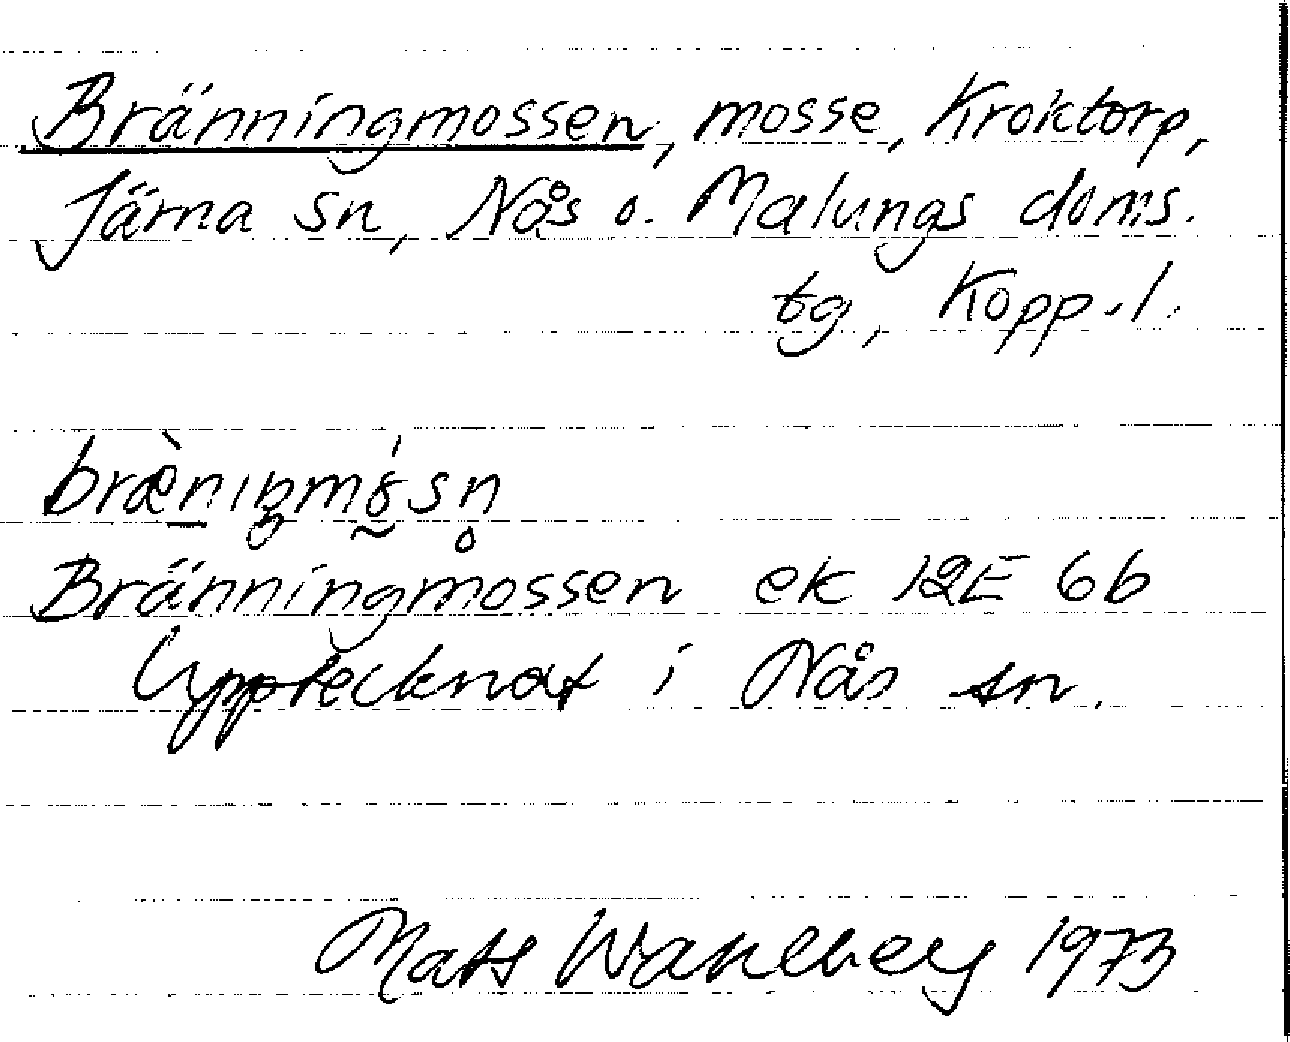 Bränningmossen, mosse, Kroktorp,
Järna sn, Nås o. Malungs doms.
tg, Kopp. l.
bræ̀n̲ıŋmǫ́sn̥
Bränningmossen ek 12E 6b
Upptecknat i Nås sn.
Mats Wahlberg 1973